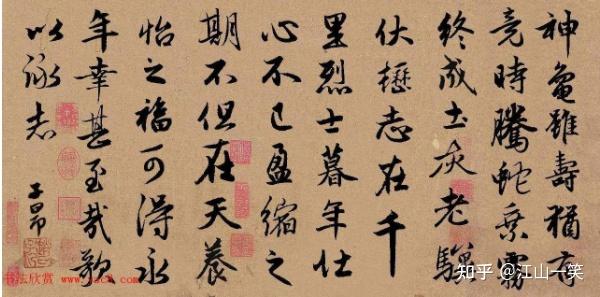 神龜雖壽猶有
竟時騰蛇乘霧
終成土灰老驥
伏櫪志在千
里烈士暮年壯
心不已盈縮之
期不但在天養
怡之福可得永
年幸甚至哉歌
以詠志
子昂
书法欣赏
知乎 @江山一笑